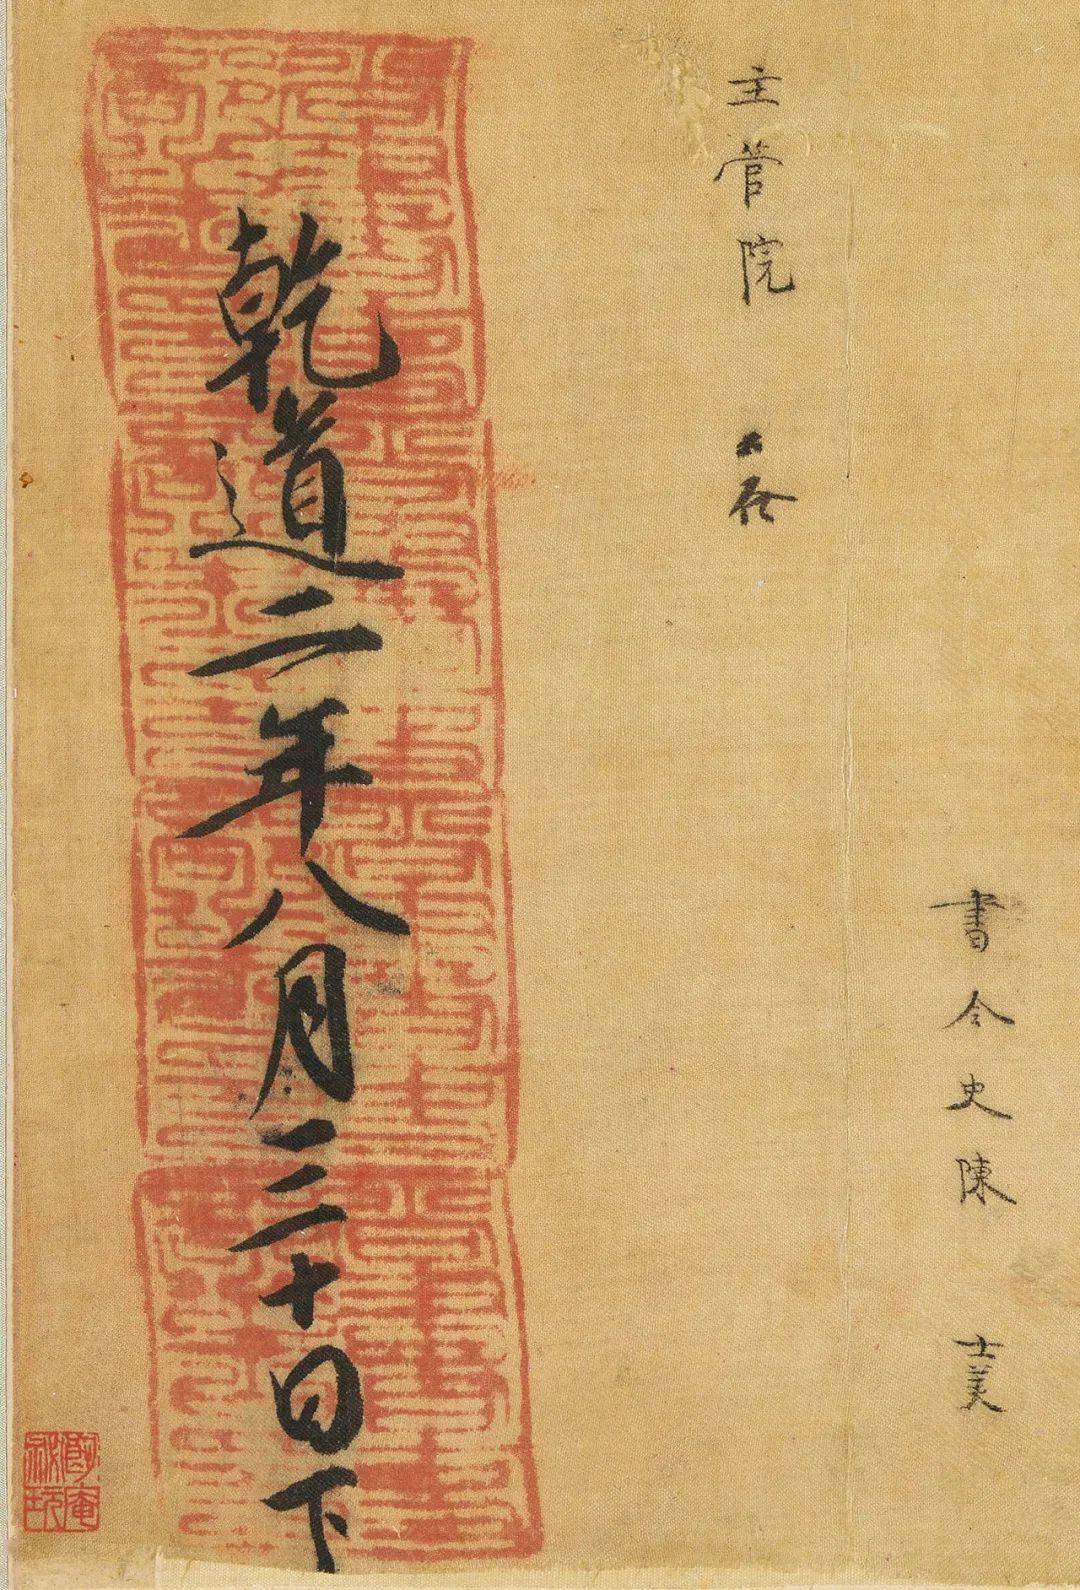 書令史陳 士美
主管院
乾道二年八月三十日下